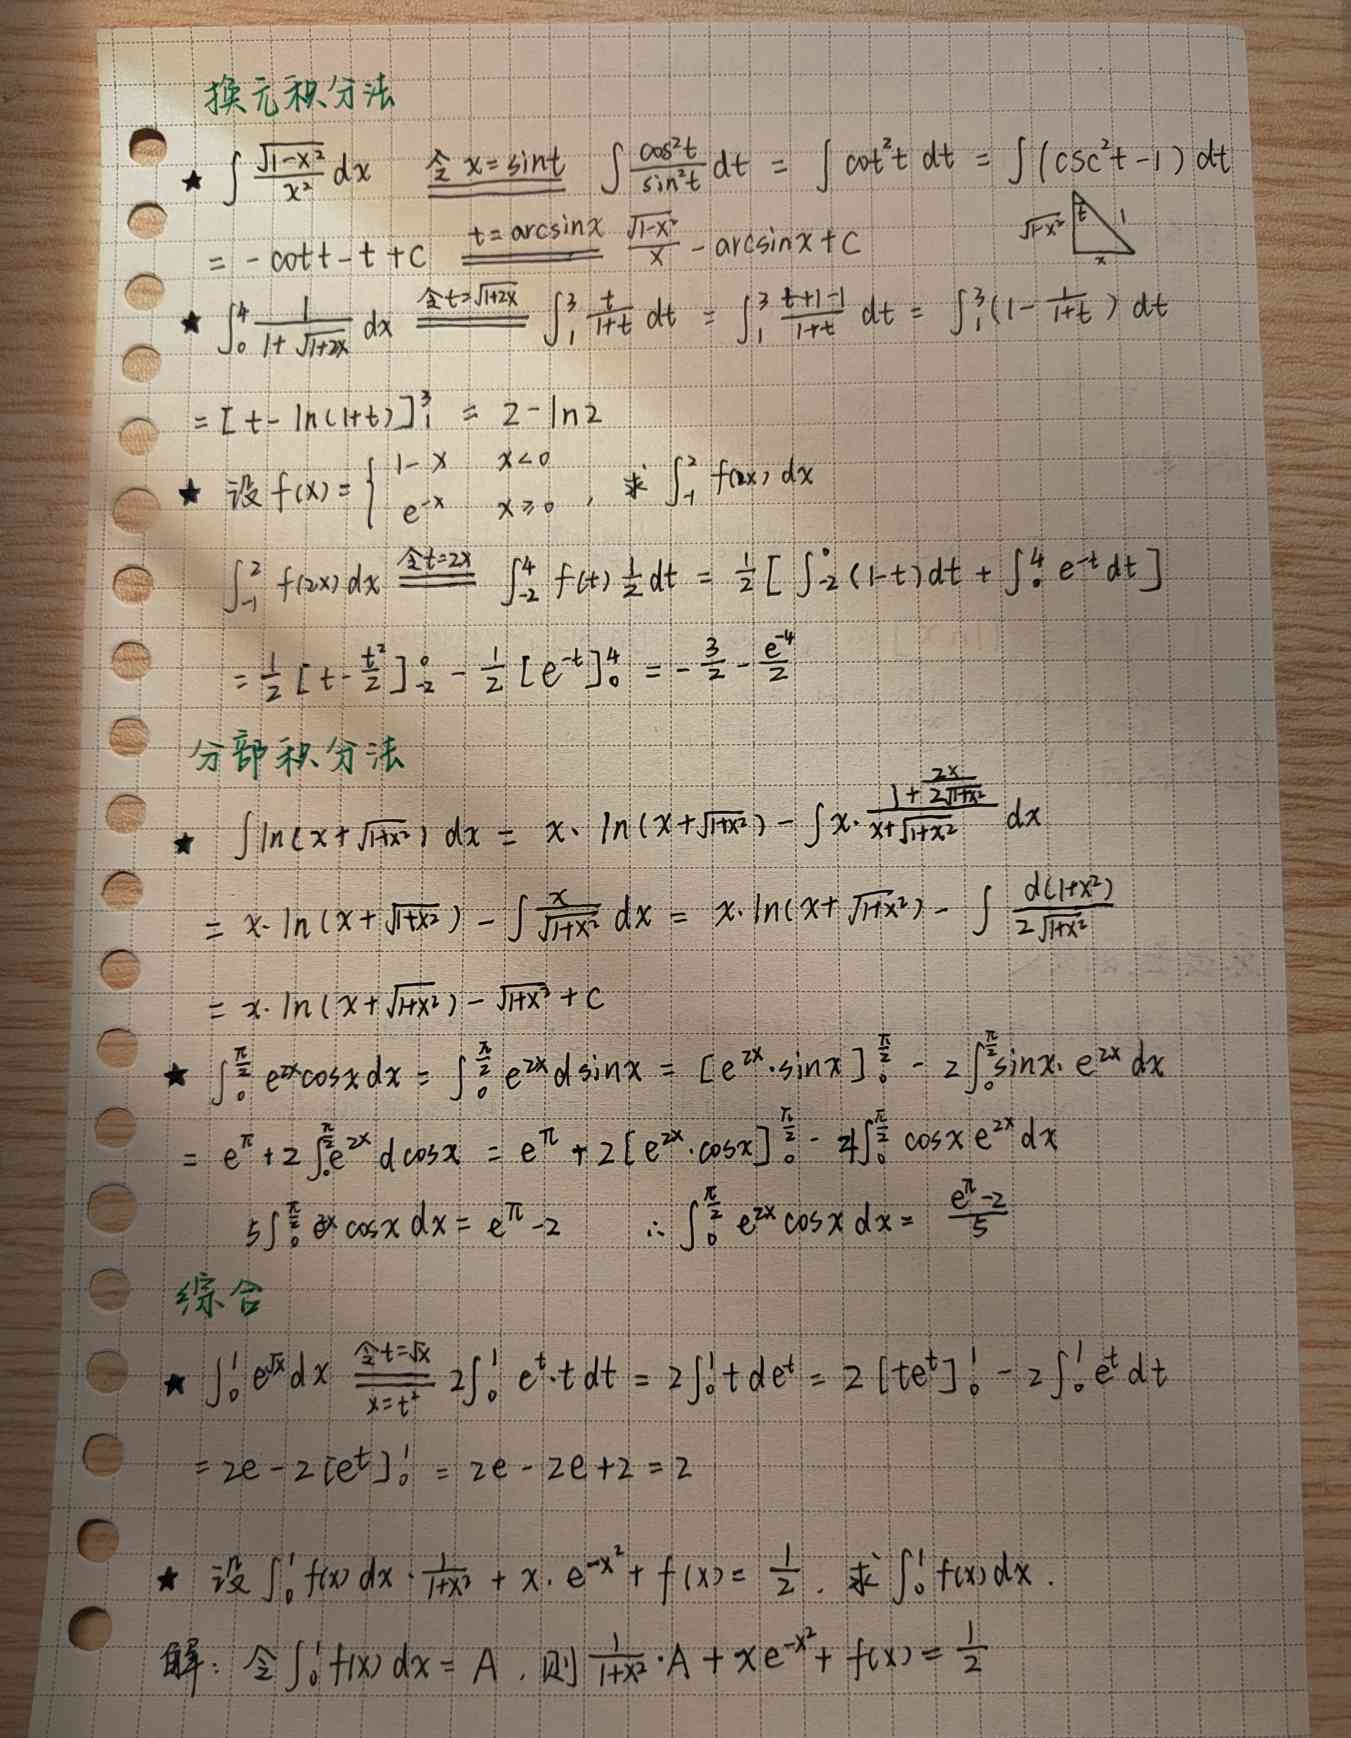 换元积分法
★ ∫ √(1-x²)/x² dx 令 x=sint ∫ cos²t/sin²t dt = ∫ cot²t dt = ∫(csc²t-1) dt
= -cott-t+C t=arcsinx √(1-x²)/x - arcsinx+C √(1-x²) t 1 x
★ ∫₀⁴ 1/(1+√(1+2x)) dx 令t=√(1+2x) ∫₁³ t/(1+t) dt = ∫₁³ (t+1-1)/(1+t) dt = ∫₁³(1-1/(1+t)) dt
= [t-ln(1+t)]₁³ = 2-ln2
★ 设f(x)={1-x x<0
e^(-x) x≥0, 求 ∫₋₁² f(2x) dx
∫₋₁² f(2x)dx 令t=2x ∫₋₂⁴ f(t) 1/2 dt = 1/2[∫₋₂⁰(1-t)dt + ∫₀⁴ e^(-t) dt]
= 1/2[t-t²/2]₋₂⁰ - 1/2[e^(-t)]₀⁴ = -3/2 - e^(-4)/2
分部积分法
★ ∫ln(x+√(1+x²)) dx = x·ln(x+√(1+x²)) - ∫x·(1+2x/(2√(1+x²)))/(x+√(1+x²)) dx
= x·ln(x+√(1+x²)) - ∫ x/√(1+x²) dx = x·ln(x+√(1+x²)) - ∫ d(1+x²)/(2√(1+x²))
= x·ln(x+√(1+x²)) - √(1+x²) + C
★ ∫₀^(π/2) e^(2x)cosx dx = ∫₀^(π/2) e^(2x) dsinx = [e^(2x)·sinx]₀^(π/2) - 2∫₀^(π/2) sinx·e^(2x) dx
= e^π + 2∫₀^(π/2) e^(2x) dcosx = e^π + 2[e^(2x)·cosx]₀^(π/2) - 4∫₀^(π/2) cosx e^(2x) dx
5∫₀^(π/2) e^(2x) cosx dx = e^π-2 ∴ ∫₀^(π/2) e^(2x) cosx dx = (e^π-2)/5
综合
★ ∫₀¹ e^(√x) dx 令t=√x x=t² 2∫₀¹ e^t·t dt = 2∫₀¹ t de^t = 2[te^t]₀¹ - 2∫₀¹ e^t dt
= 2e-2[e^t]₀¹ = 2e-2e+2 = 2
★ 设∫₀¹ f(x) dx · 1/(1+x²) + x·e^(-x²) + f(x) = 1/2. 求∫₀¹ f(x) dx.
解: 令∫₀¹ f(x) dx = A, 则 1/(1+x²)·A + xe^(-x²) + f(x) = 1/2